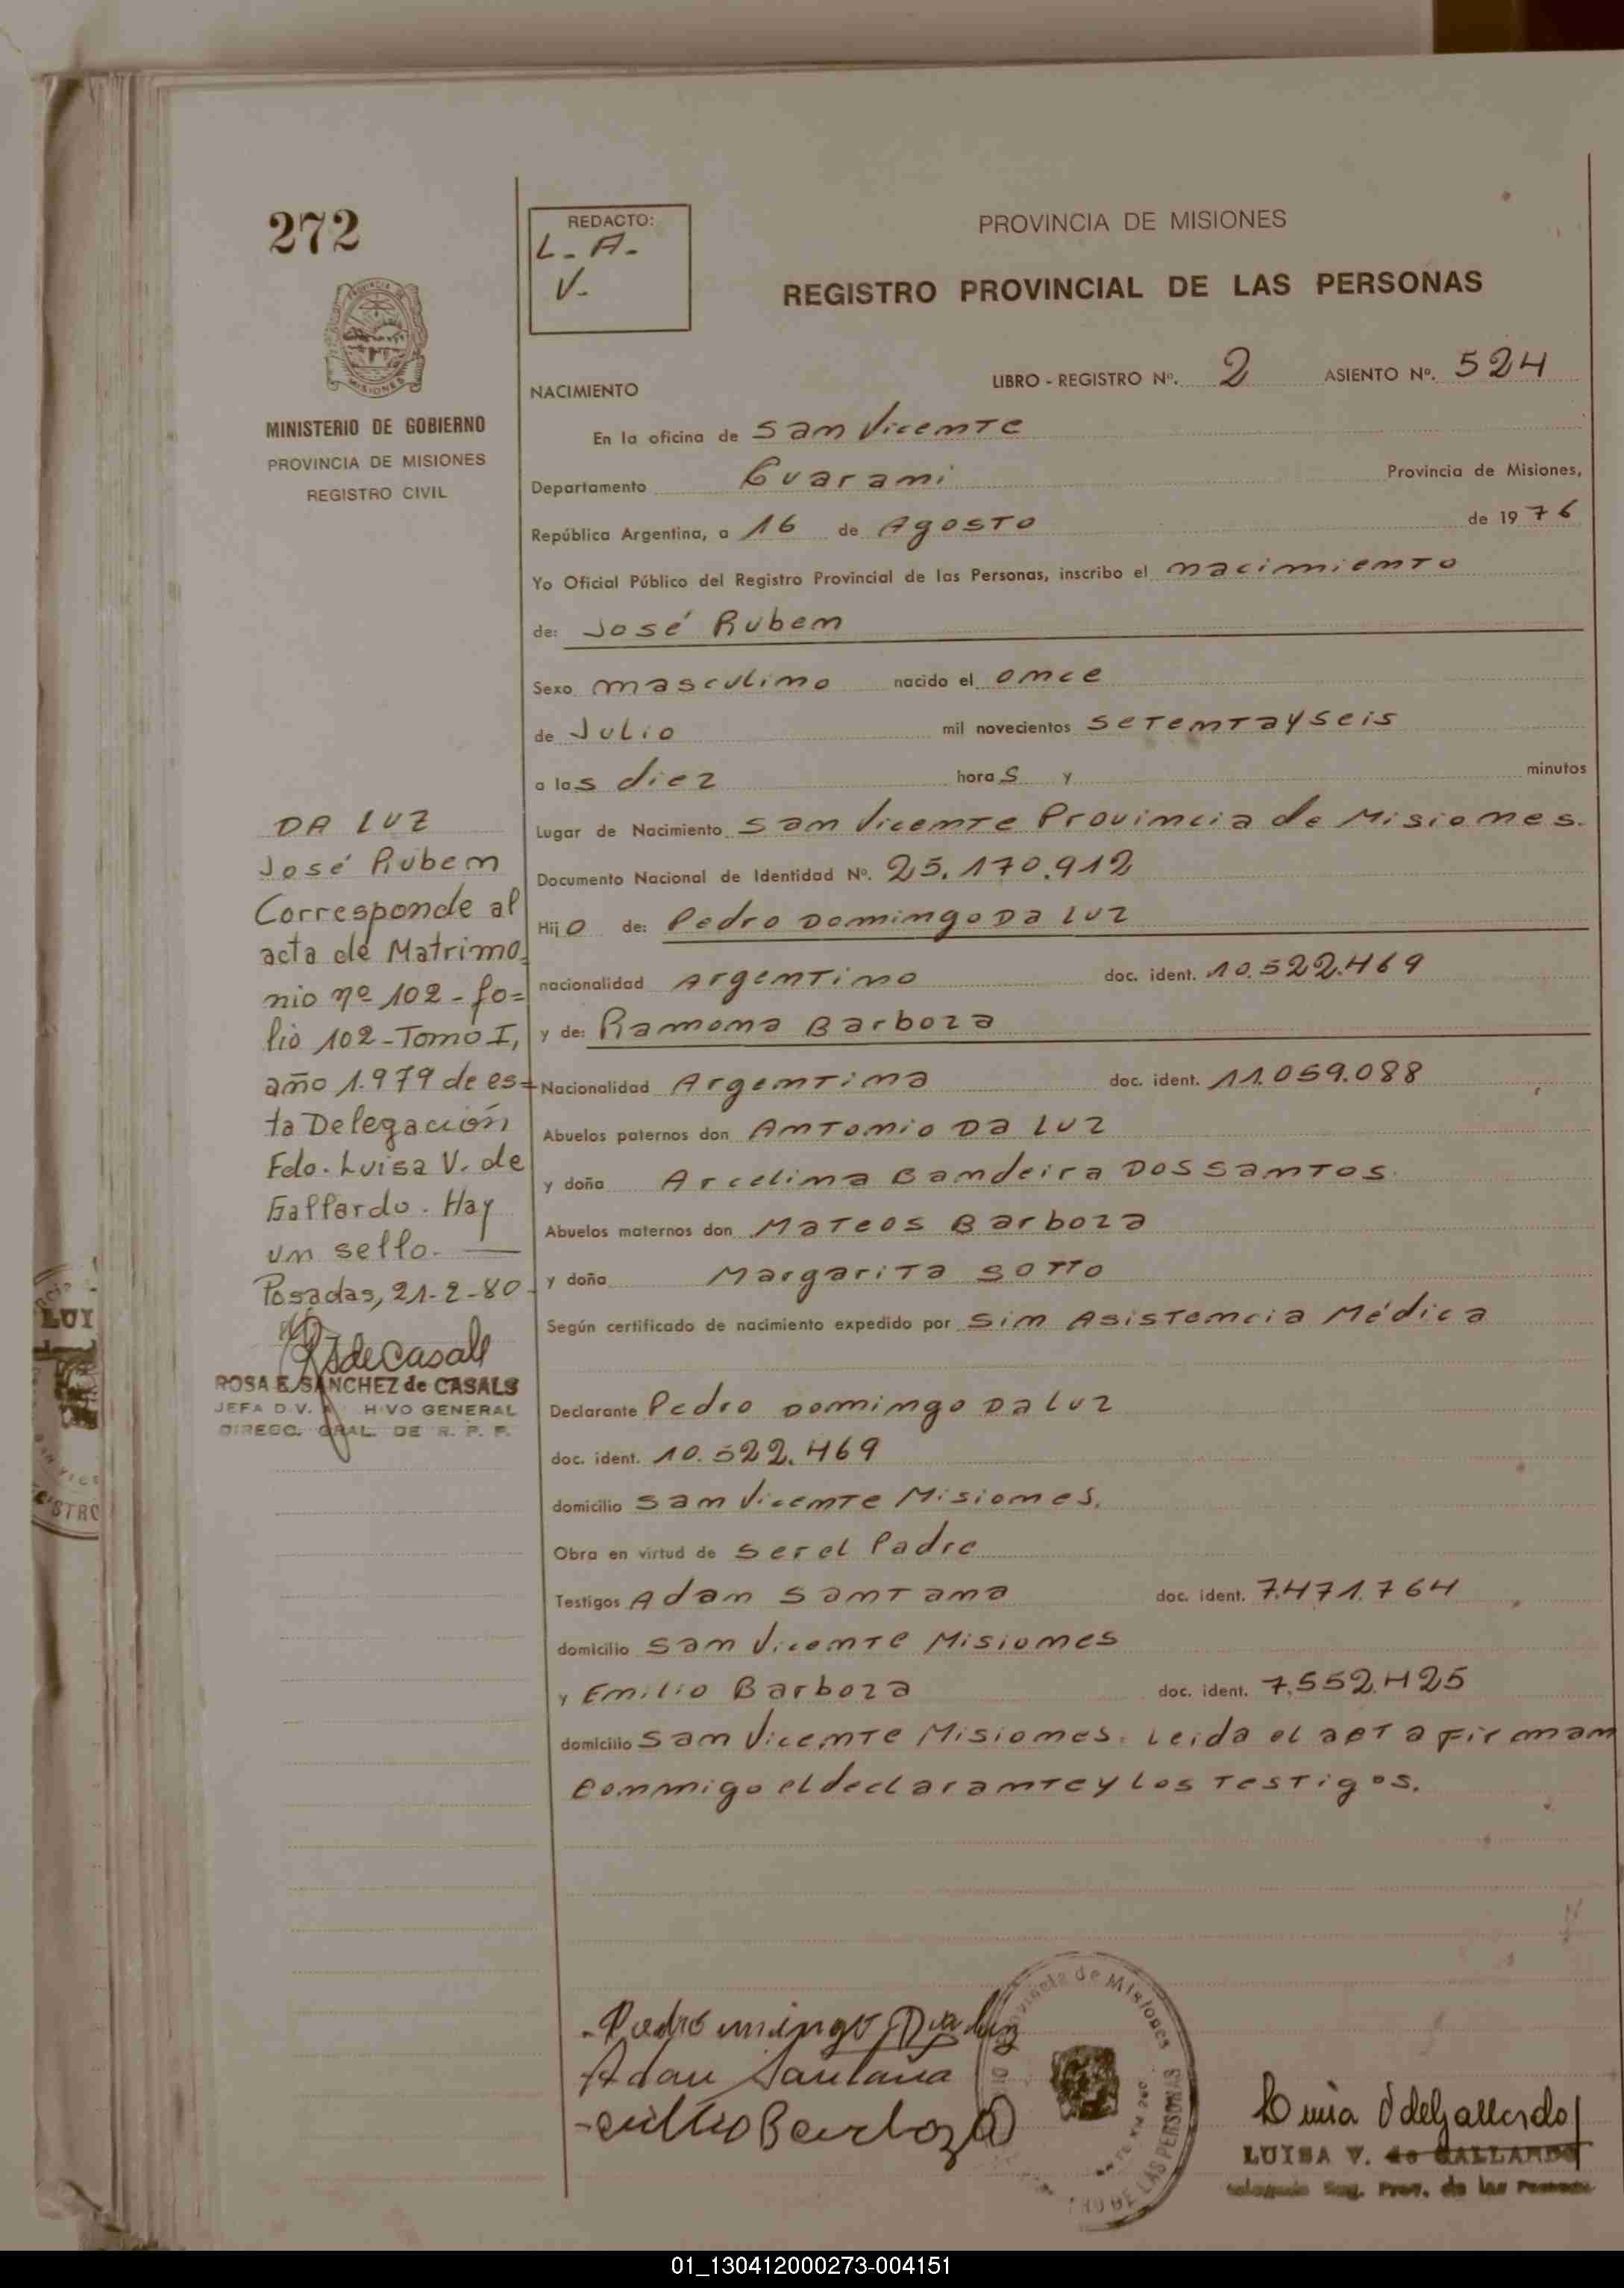 272
REDACTO:
L. A.
V.
PROVINCIA DE MISIONES
REGISTRO PROVINCIAL DE LAS PERSONAS
MISIONES
MINISTERIO DE GOBIERNO
PROVINCIA DE MISIONES
REGISTRO CIVIL
NACIMIENTO
LIBRO - REGISTRO Nº. 2 ASIENTO Nº. 524
En la oficina de San Vicente
Departamento Guarani Provincia de Misiones,
República Argentina, a 16 de Agosto de 1976
Yo Oficial Público del Registro Provincial de las Personas, inscribo el nacimiento
de: José Ruben
Sexo masculino nacido el once
de Julio mil novecientos setentayseis
a las diez horas y minutos
Lugar de Nacimiento San Vicente Provincia de Misiones.
Documento Nacional de Identidad Nº. 25.170.912
Hijo de: Pedro Domingo Da Luz
nacionalidad Argentino doc. ident. 10.522.469
y de: Ramona Barboza
Nacionalidad Argentina doc. ident. 11.059.088
Abuelos paternos don Antonio Da Luz
y doña Arcelina Bandeira Dos Santos.
Abuelos maternos don Mateos Barboza
y doña Margarita Sotto
Según certificado de nacimiento expedido por Sin Asistencia Médica
Declarante Pedro Domingo Da Luz
doc. ident. 10.522.469
domicilio San Vicente Misiones.
Obra en virtud de ser el Padre
Testigos Adan Santana doc. ident. 7.471.764
domicilio San Vicente Misiones
y Emilio Barboza doc. ident. 7.552.425
domicilio San Vicente Misiones. Leida el acta firman
conmigo el declarante y los testigos.
DA LUZ
José Ruben
Corresponde al
acta de Matrimo=
nio nº 102 - fo=
lio 102 - Tomo I,
año 1.979 de es=
ta Delegación
Fdo. Luisa V. de
Gallardo. Hay
un sello.
Posadas, 21-2-80
RSdeCasals
ROSA E. SANCHEZ de CASALS
JEFA DIV. HIVO GENERAL
DIRECC. GRAL. DE R. P. P.
LUI
Pedro mingo Da luz
Adan Santana
Emilio Barboza
Provincia de Misiones
RO DE LAS PERSONAS
Luisa V de Gallardo
LUISA V. de GALLARDO
Reg. Prov. de las Personas
01_130412000273-004151